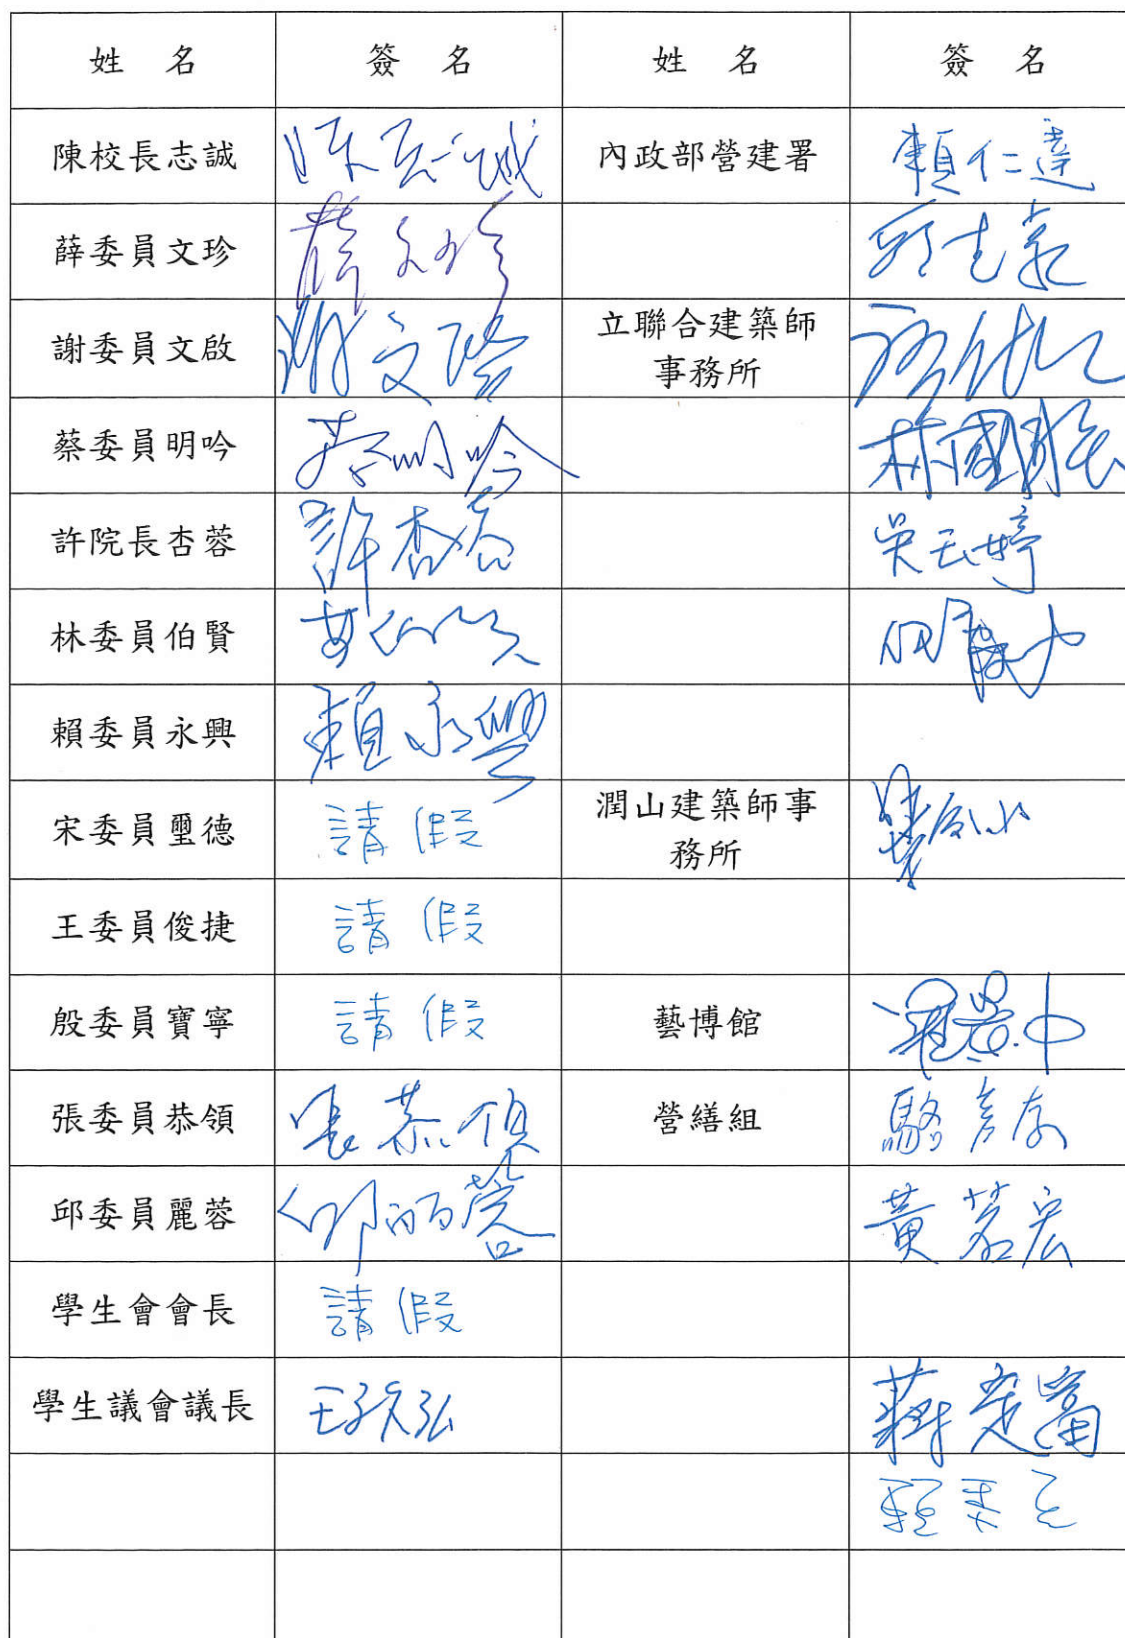 姓 名 簽 名 姓 名 簽 名
陳校長志誠 陳志誠 內政部營建署 賴仁達
薛委員文珍 薛文珍
謝委員文啟 謝文啟 立聯合建築師
事務所
蔡委員明吟 蔡明吟 林國
許院長杏蓉 許杏蓉 吳玉婷
林委員伯賢 林伯賢
賴委員永興 賴永興
宋委員璽德 請假 潤山建築師事
務所
王委員俊捷 請假
殷委員寶寧 請假 藝博館
張委員恭領 張恭領 營繕組 駱
邱委員麗蓉 邱麗蓉 黃茗宏
學生會會長 請假
學生議會議長 王 弘 蔣定富